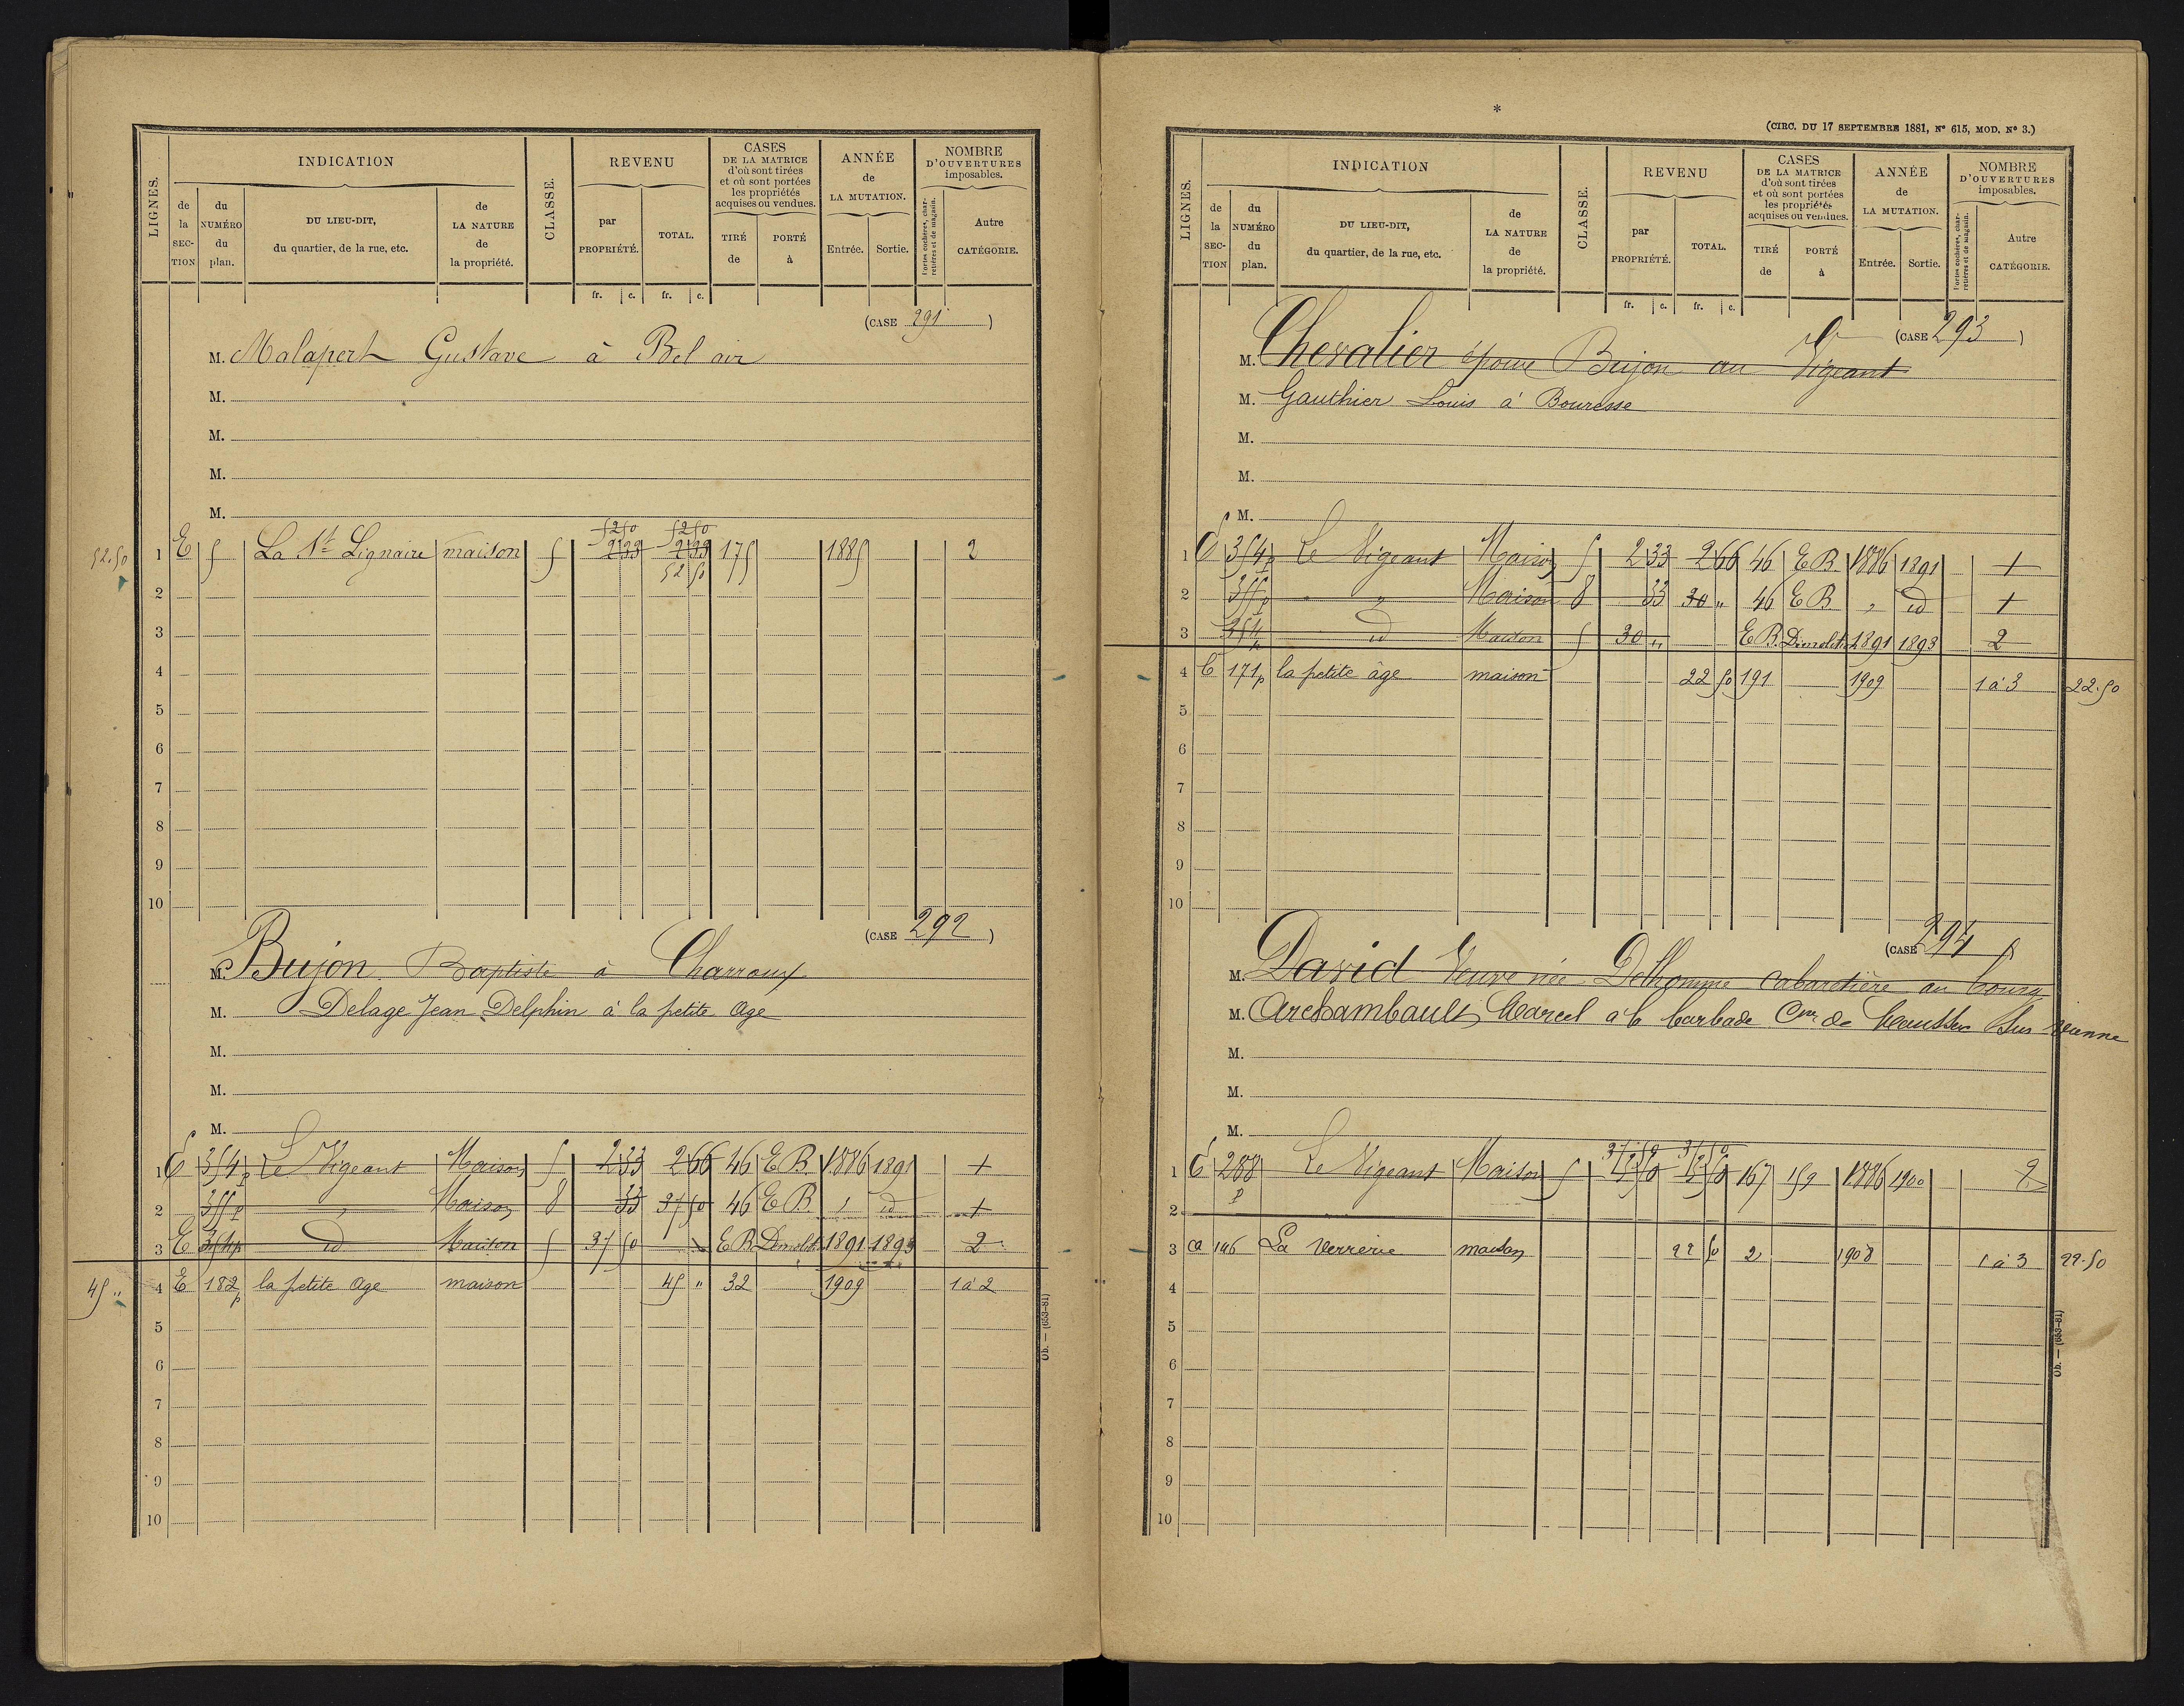 INDICATION
REVENU
CASES
DE LA MATRICE
d'où sont tirées
et où sont portées
les propriétés
acquises ou vendues.
ANNÉE
de
LA MUTATION.
NOMBRE
D'OUVERTURES
imposables.
LIGNES.
de la SECTION
du NUMÉRO du plan.
DU LIEU-DIT,
du quartier, de la rue, etc.
de LA NATURE de la propriété.
CLASSE.
par PROPRIÉTÉ.
TOTAL.
TIRÉ de
PORTÉ à
Entrée.
Sortie.
Portes cochères, charretières et de magasin.
Autre CATÉGORIE.
fr. c. fr. c.
(CASE 291)
M. Malapert Gustave à Bel air
M.
M.
M.
M.
52 50 52 50
52.50 1 E 5 La St Lignaire maison 5 2 33 2 33 175 1885 2
52 50
2
3
4
5
6
7
8
9
10
(CASE 292)
M. Bujon Baptiste à Charroux
M. Delage Jean Delphin à la petite Age
M.
M.
M.
1 E 354p Le Vigeant Maison 5 2 33 2 66 46 E B 1886 1891 1
2 355p " Maison 8 33 37 50 46 E B " id 1
3 E 354p id Maison 5 37 50 E B Démolit. 1891 1893 2
45 " 4 E 182p la petite Age maison 45 " 32 1909 1 à 2
5
6
7
8
9
10
Ob. — (653-81)
*
(CIRC. DU 17 SEPTEMBRE 1881, N° 615, MOD. N° 3.)
INDICATION
REVENU
CASES
DE LA MATRICE
d'où sont tirées
et où sont portées
les propriétés
acquises ou vendues.
ANNÉE
de
LA MUTATION.
NOMBRE
D'OUVERTURES
imposables.
LIGNES.
de la SECTION
du NUMÉRO du plan.
DU LIEU-DIT,
du quartier, de la rue, etc.
de LA NATURE de la propriété.
CLASSE.
par PROPRIÉTÉ.
TOTAL.
TIRÉ de
PORTÉ à
Entrée.
Sortie.
Portes cochères, charretières et de magasin.
Autre CATÉGORIE.
fr. c. fr. c.
(CASE 293)
M. Chevalier époux Bujon au Vigeant
M. Gauthier Louis à Bouresse
M.
M.
M.
1 E 354p Le Vigeant Maison 5 2 33 2 66 46 E B 1886 1891 1
2 355p " Maison 8 33 30 " 46 E B " id 1
3 354p id Maison 5 30 " E B Démolit. 1891 1893 2
4 E 171p la petite âge maison 22 50 191 1909 1 à 3 22.50
5
6
7
8
9
10
(CASE 294)
M. David Veuve née Delhomme cabaretière au bourg
M. Archambault Marcel à la barbade Cne de Moussac Sur Vienne
M.
M.
M.
37 50 37 50
1 E 288p Le Vigeant Maison 5 167 159 1886 1900 2
2
3 146 La Verrerie maison 22 50 2 1908 1 à 3 22.50
4
5
6
7
8
9
10
Ob. — (653-81)